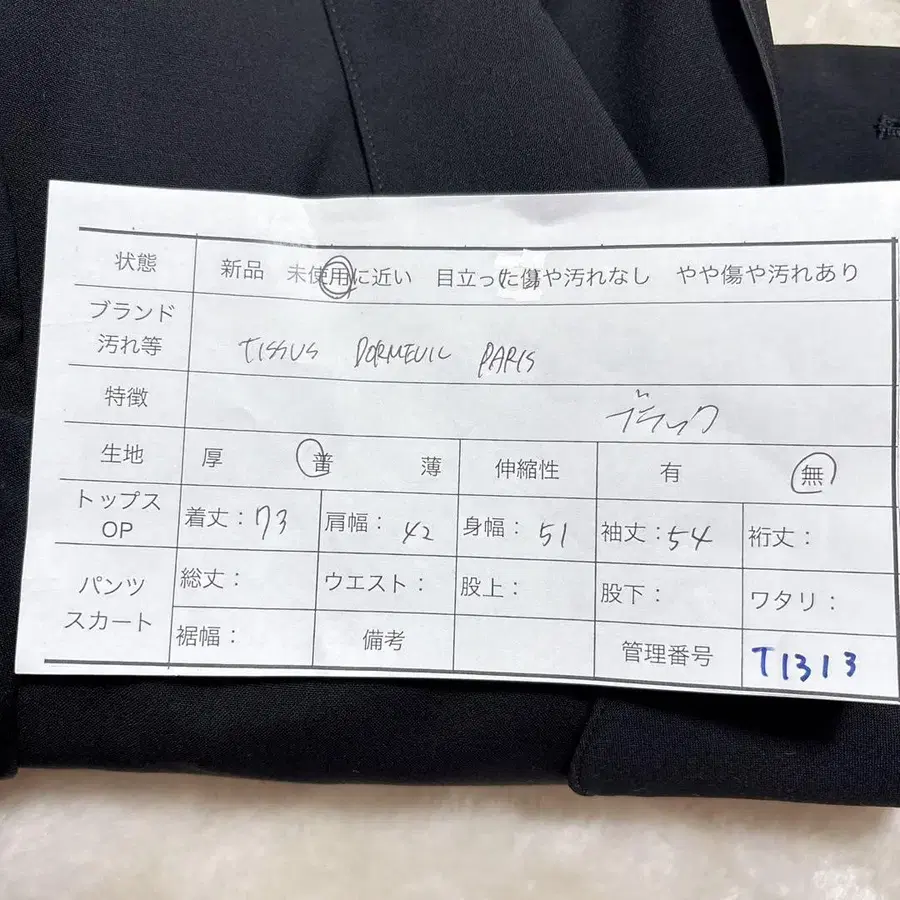 状態 新品 未使用に近い 目立った傷や汚れなし やや傷や汚れあり
ブランド
汚れ等 TISSUS DORMEUIL PARIS
特徴 ブラック
生地 厚 普 薄 伸縮性 有 無
トップス
OP 着丈：73 肩幅：42 身幅：51 袖丈：54 裄丈：
パンツ
スカート 総丈： ウエスト： 股上： 股下： ワタリ：
裾幅： 備考 管理番号 T1313